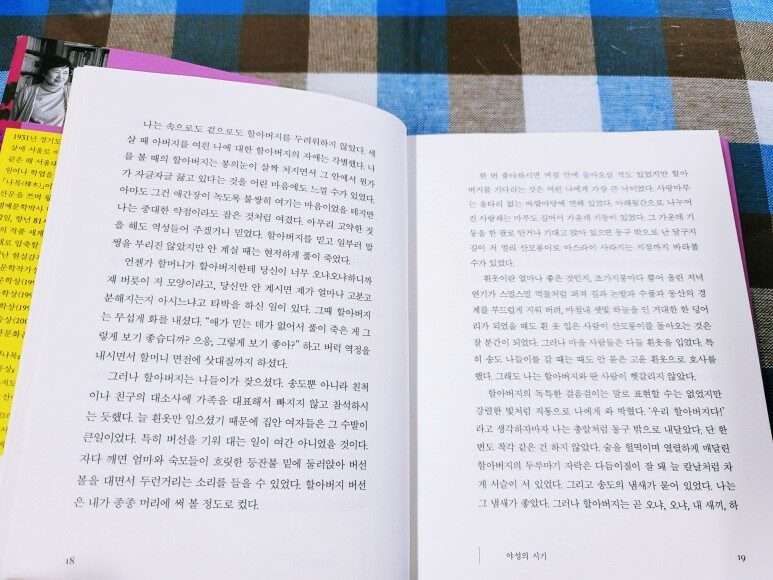 1931년 경기도
살에 서울로 이
같은 해 서울대
일어나 학업을
『나목(裸木)』이
산문을 쓰며 왕
별예문학박사
2일, 향년 81
의 작품 세계
로 압축할
난 현실감
문학작가상
학상(199
문학상(199
학상(199
수상(20
가문화훈
나는 속으로도 겉으로도 할아버지를 두려워하지 않았다. 세
살 때 아버지를 여읜 나에 대한 할아버지의 자애는 각별했다. 나
를 볼 때의 할아버지는 봉의눈이 살짝 처지면서 그 안에서 뭔가
가 자글자글 끓고 있다는 것을 어린 마음에도 느낄 수가 있었다.
아마도 그건 애간장이 녹도록 불쌍히 여기는 마음이었을 테지만
나는 중대한 약점이라도 잡은 것처럼 여겼다. 아무리 고약한 짓
을 해도 역성들어 주겠거니 믿었다. 할아버지를 믿고 일부러 말
썽을 부리진 않았지만 안 계실 때는 현저하게 풀이 죽었다.
언젠가 할머니가 할아버지한테 당신이 너무 오냐오냐하니까
쟤 버릇이 저 모양이라고, 당신만 안 계시면 쟤가 얼마나 고분고
분해지는지 아시느냐고 타박을 하신 일이 있다. 그때 할아버지
는 무섭게 화를 내셨다. “애가 믿는 데가 없어서 풀이 죽은 게 그
렇게 보기 좋습디까? 으응, 그렇게 보기 좋아?” 하고 버럭 역정을
내시면서 할머니 면전에 삿대질까지 하셨다.
그러나 할아버지는 나들이가 잦으셨다. 송도뿐 아니라 친척
이나 친구의 대소사에 가족을 대표해서 빠지지 않고 참석하시
는 듯했다. 늘 흰옷만 입으셨기 때문에 집안 여자들은 그 수발이
큰일이었다. 특히 버선을 기워 대는 일이 여간 아니었을 것이다.
자다 깨면 엄마와 숙모들이 흐릿한 등잔불 밑에 둘러앉아 버선
볼을 대면서 두런거리는 소리를 들을 수 있었다. 할아버지 버선
은 내가 종종 머리에 써 볼 정도로 컸다.
18
한 번 출타하시면 며칠 만에 돌아오실 적도 있었지만 할아
버지를 기다리는 것은 어린 나에게 가장 큰 낙이었다. 사랑마루
는 울타리 없는 바깥마당에 면해 있었다. 아래윗간으로 나누어
진 사랑채는 마루도 길어서 가운데 기둥이 있었다. 그 가운데 기
둥을 한 팔로 안거나 기대고 앉아 있으면 동구 밖으로 난 달구지
길이 저 멀리 산모롱이로 아스라이 사라지는 지점까지 바라볼
수가 있었다.
흰옷이란 얼마나 좋은 것인지, 초가지붕마다 뿜어 올린 저녁
연기가 스멀스멀 먹물처럼 퍼져 길과 논밭과 수풀과 동산의 경
계를 부드럽게 지워 버려, 마침내 잿빛 하늘을 인 거대한 한 덩어
리가 되었을 때도 흰 옷 입은 사람이 산모롱이를 돌아오는 것은
잘 분간이 되었다. 그러나 마을 사람들은 다들 흰옷을 입었다. 특
히 송도 나들이를 갈 때는 때도 안 묻은 고운 흰옷으로 호사를
했다. 그래도 나는 할아버지와 딴 사람이 헷갈리지 않았다.
할아버지의 독특한 걸음걸이는 말로 표현할 수는 없었지만
강렬한 빛처럼 직통으로 나에게 와 박혔다. ‘우리 할아버지다!’
라고 생각하자마자 나는 총알처럼 동구 밖으로 내달았다. 단 한
번도 착각 같은 건 하지 않았다. 숨을 헐떡이며 열렬하게 매달린
할아버지의 두루마기 자락은 다듬이질이 잘 돼 늘 칼날처럼 차
게 서슬이 서 있었다. 그리고 송도의 냄새가 묻어 있었다. 나는
그 냄새가 좋았다. 그러나 할아버지는 곧 오냐, 오냐, 내 새끼, 하
야성의 시기
19